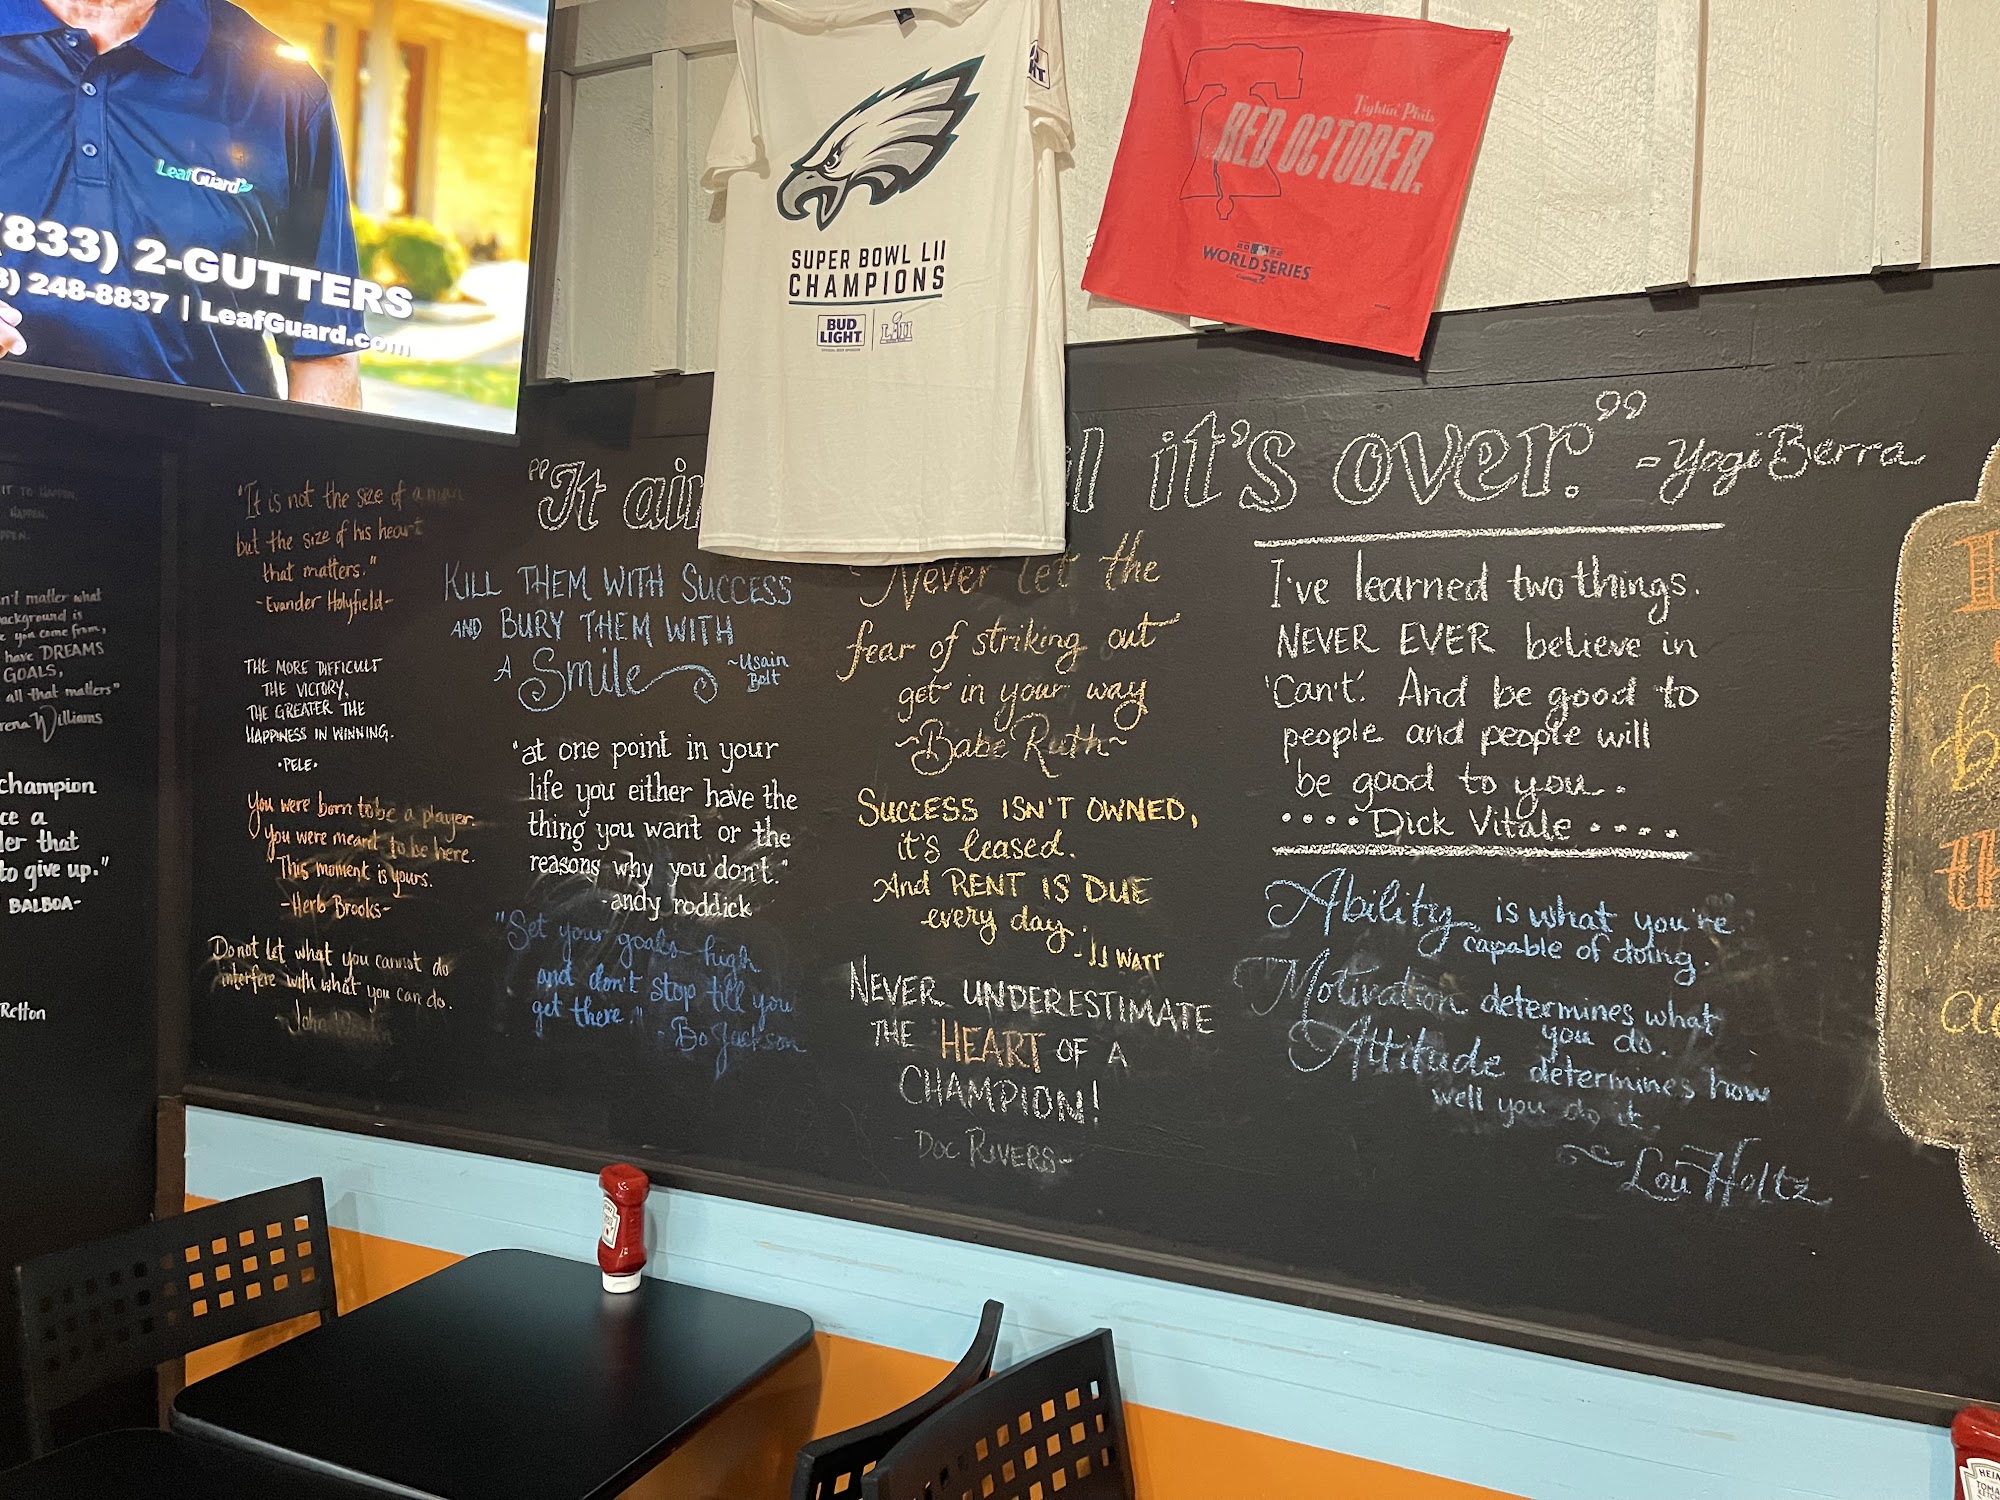 LeafGuard
(833) 2-GUTTERS
248-8837 | LeafGuard.com
SUPER BOWL LII
CHAMPIONS
BUD
LIGHT
LII
Fightin' Phils
RED OCTOBER
2022
WORLD SERIES
"It ain it's over."
-Yogi Berra
IT TO HAPPEN,
HAPPEN,
matter what
background is
you come from,
have DREAMS
GOALS,
all that matters"
Williams
champion
a
that
to give up."
BALBOA-
Retton
"It is not the size of a man
but the size of his heart
that matters."
-Evander Holyfield-
THE MORE DIFFICULT
THE VICTORY,
THE GREATER THE
HAPPINESS IN WINNING.
·PELE·
You were born to be a player.
You were meant to be here.
This moment is yours.
-Herb Brooks-
Do not let what you cannot do
interfere with what you can do.
-John
KILL THEM WITH SUCCESS
AND BURY THEM WITH
A Smile
~Usain
Bolt
"at one point in your
life you either have the
thing you want or the
reasons why you don't."
-andy roddick
"Set your goals high
and don't stop till you
get there."
- Bo Jackson
Never let the
fear of striking out
get in your way
~Babe Ruth~
SUCCESS ISN'T OWNED,
it's leased.
And RENT IS DUE
every day.
-JJ WATT
NEVER UNDERESTIMATE
THE HEART OF A
CHAMPION!
DOC RIVERS~
I've learned two things.
NEVER EVER believe in
'Can't'. And be good to
people and people will
be good to you.
....Dick Vitale....
Ability is what you're
capable of doing.
Motivation determines what
you do.
Attitude determines how
well you do it.
~Lou Holtz
HEINZ
TOMATO
KETCHUP